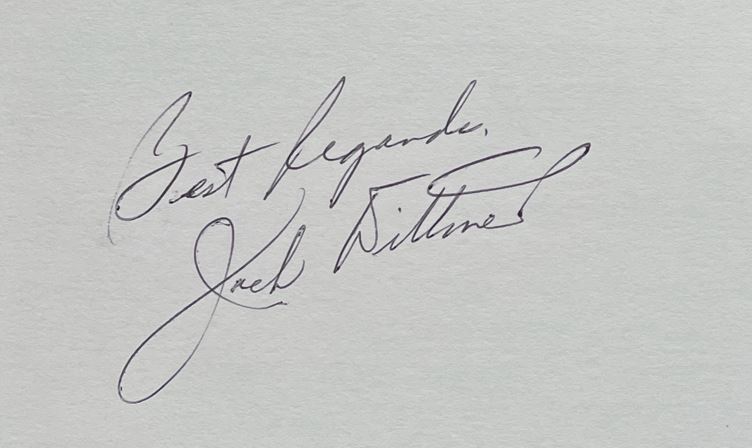 Best Regards,
Jack Dittmer